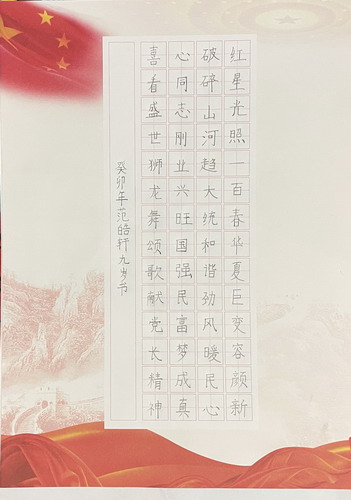 红星光照一百春华夏巨变容颜新
破碎山河趋大统和谐劲风暖民心
心同志刚业兴旺国强民富梦成真
喜看盛世狮龙舞颂歌献党长精神
癸卯年范皓轩九岁书